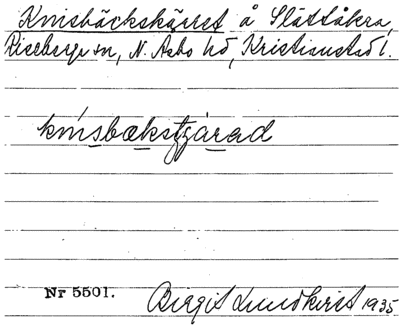 Knisbäckskäret å Slättåkra,
Riseberga sn, N. Asbo hd, Kristianstad l.
Nr 5501.
Birgit Lundkvist 1935